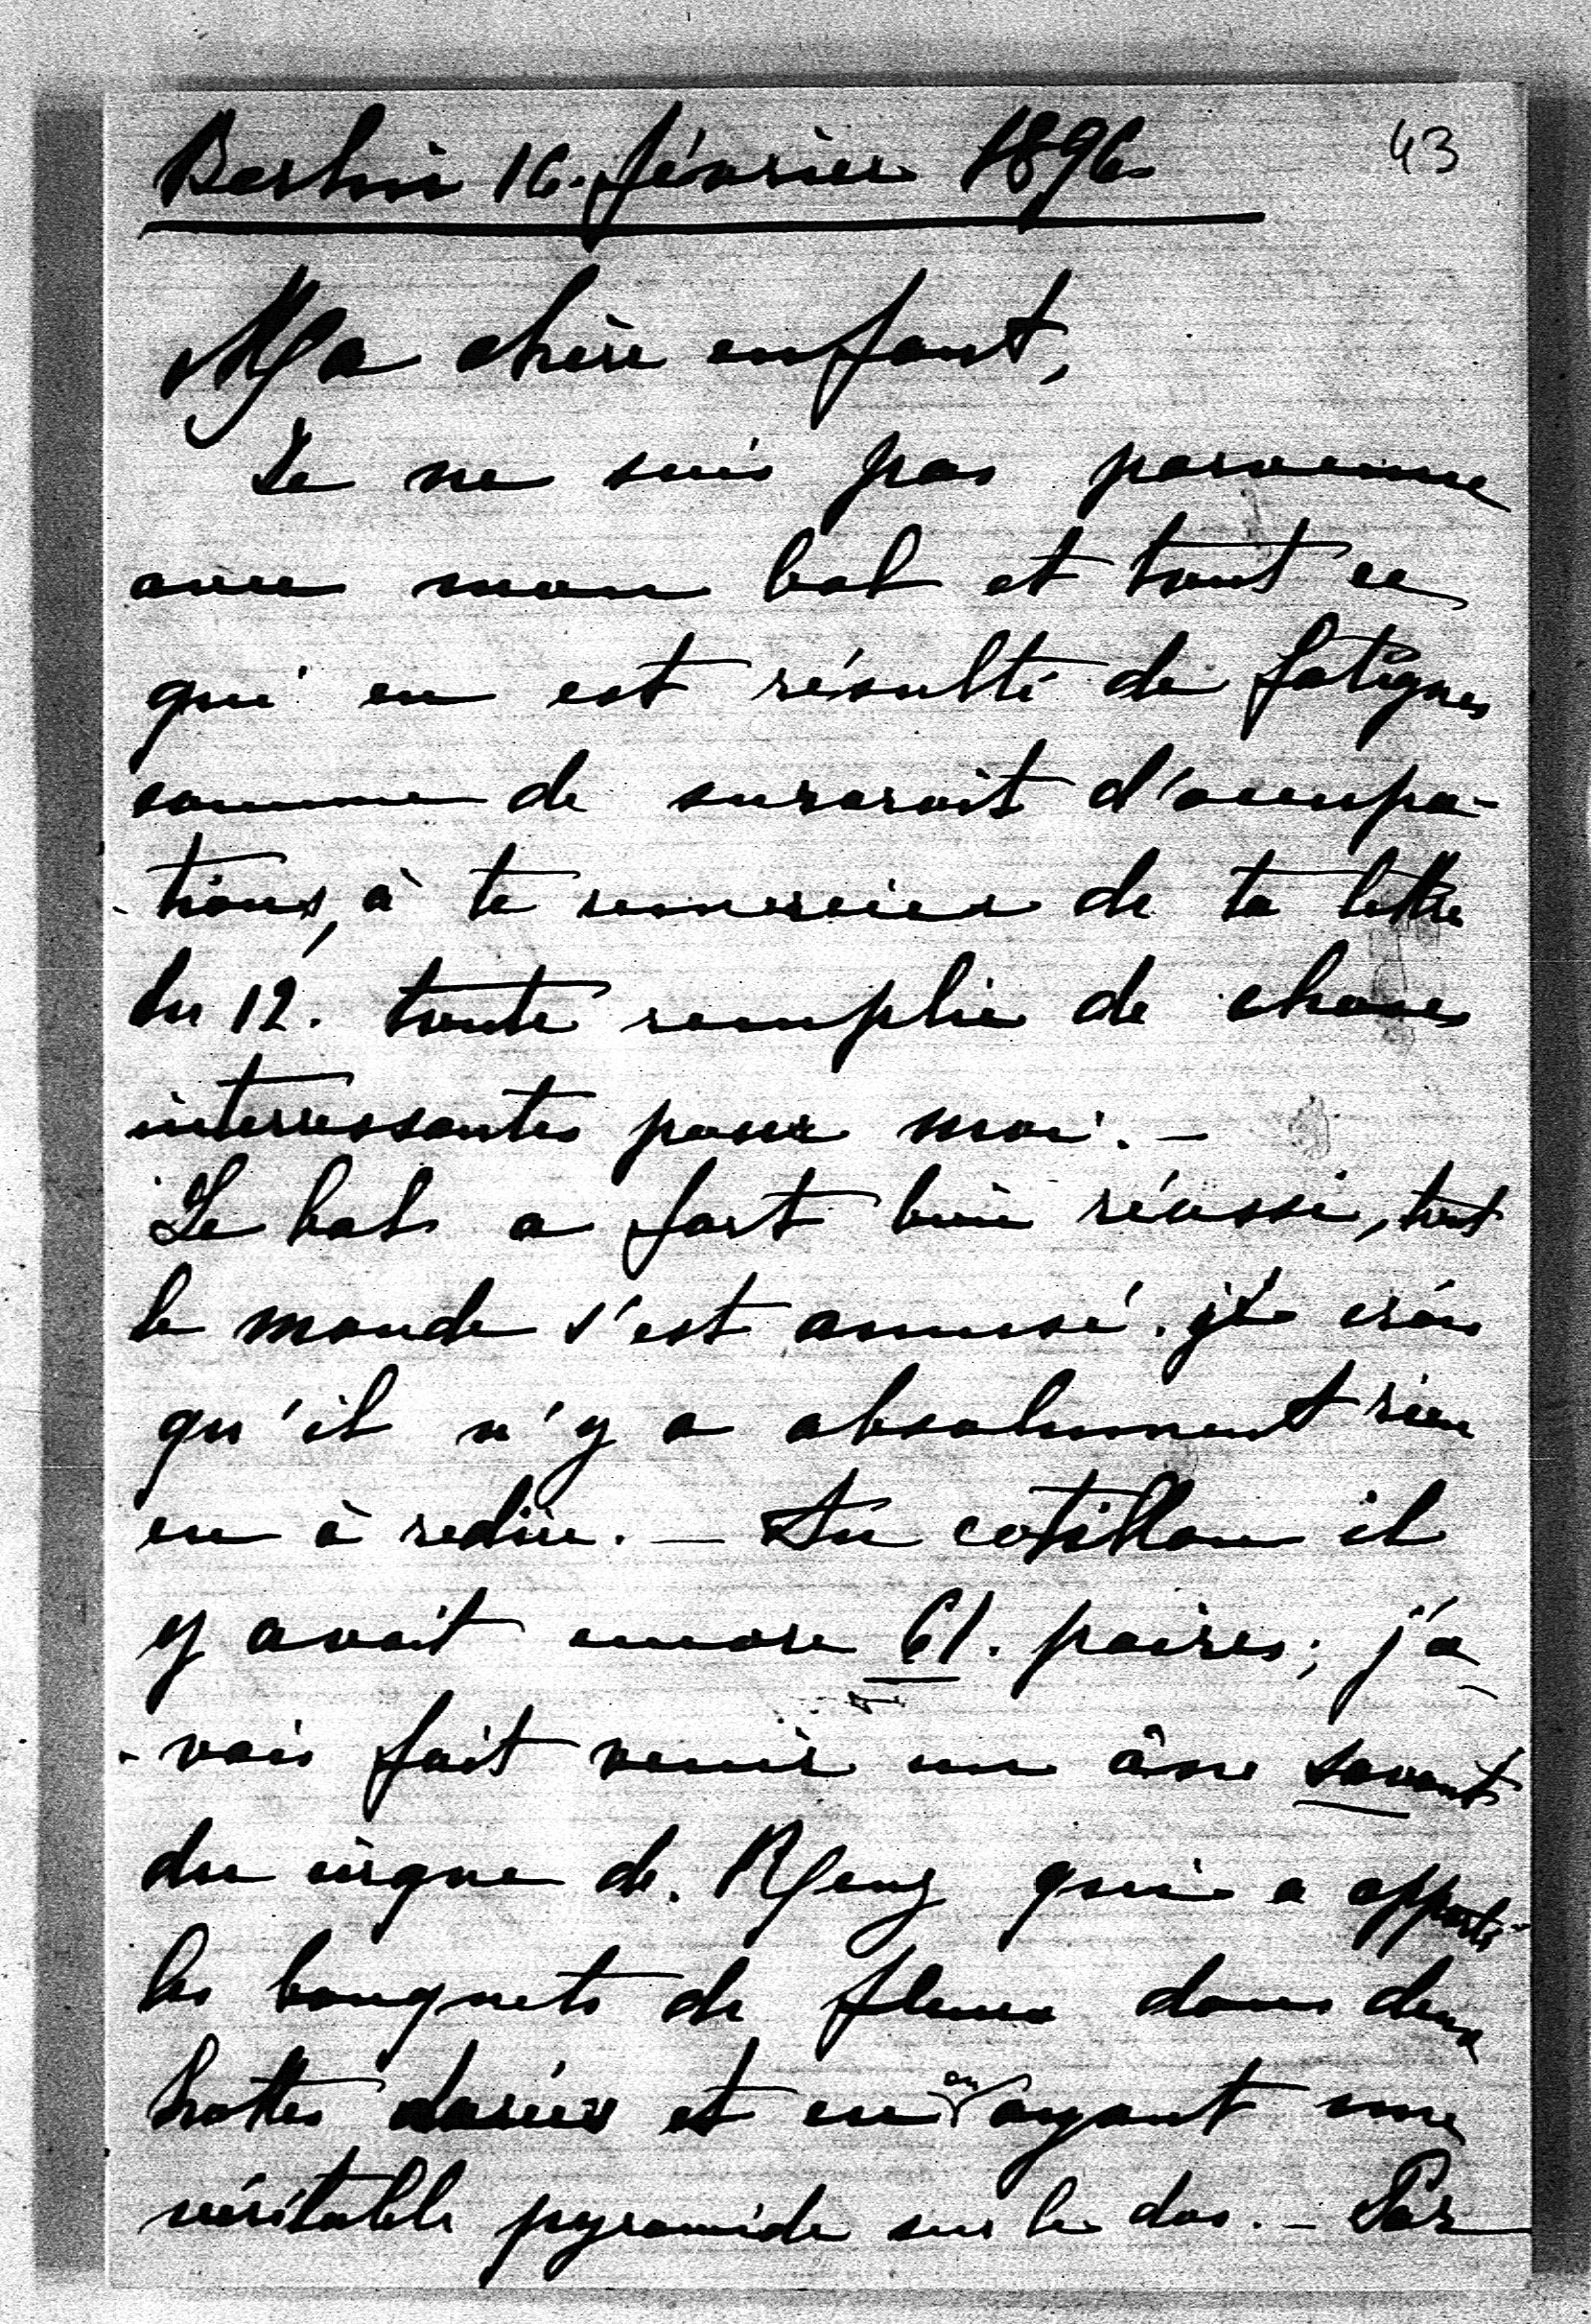 Berlin 16. février 1896.
43
Ma chère enfant,
Je ne suis pas parvenue
avec mon bal et tout ce
qui en est résulté de fatigues
comme de surcroît d'occupa-
-tions, à te remercier de ta lettre
du 12. toute remplie de choses
interressantes pour moi. -
Le bal a fort bien réussi, tout
le monde s'est amusé. je crois
qu'il n'y a absolument rien
eu à redire. - Au cotillon il
y avait encore 61. paires; j'a-
-vais fait venir un âne savant
du cirque de. Renz qui a apporté
les bouquets de fleurs dans deux
hottes dorées et en en ayant une
véritable pyramide sur le dos. - Par